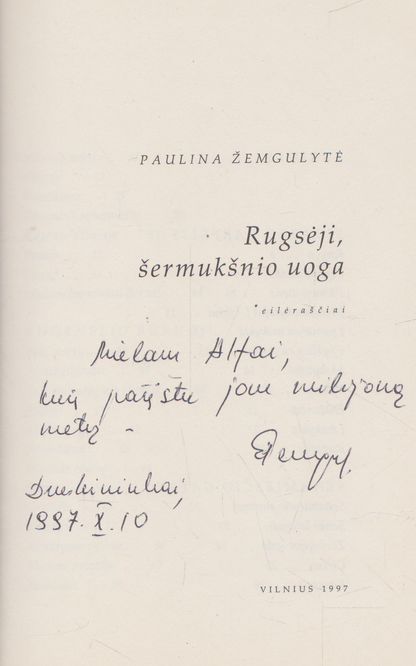 PAULINA ŽEMGULYTĖ
Rugsėji,
šermukšnio uoga
eilėraščiai
Mielam Alfai,
kurį pažįstu jau milijoną
metų –
Druskininkai,
1997.X.10
VILNIUS 1997